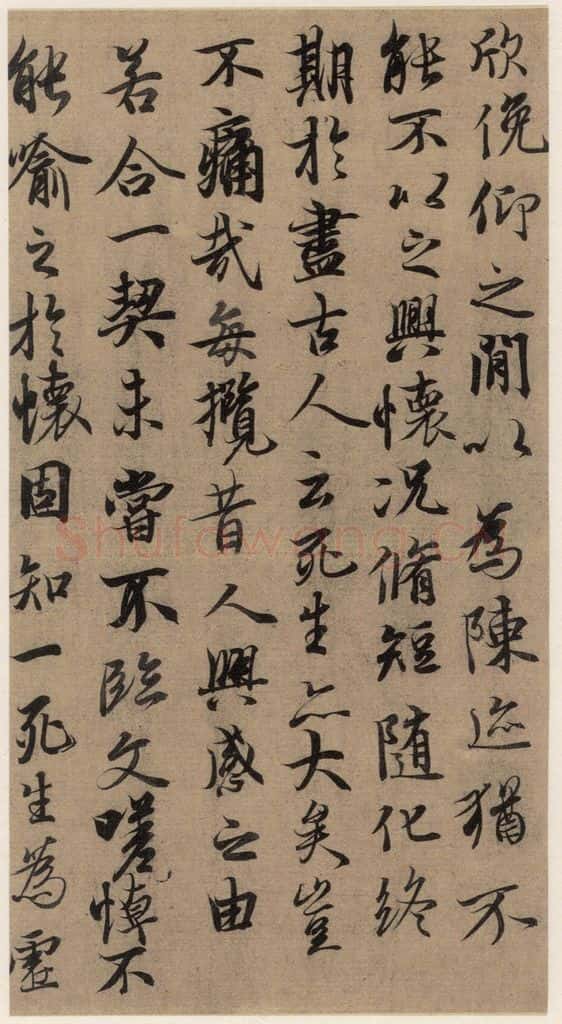 欣俛仰之閒以為陳迹猶不
能不以之興懷況脩短隨化終
期於盡古人云死生亦大矣豈
不痛哉每攬昔人興感之由
若合一契未嘗不臨文嗟悼不
能喻之於懷固知一死生為虛
shufawang.cn